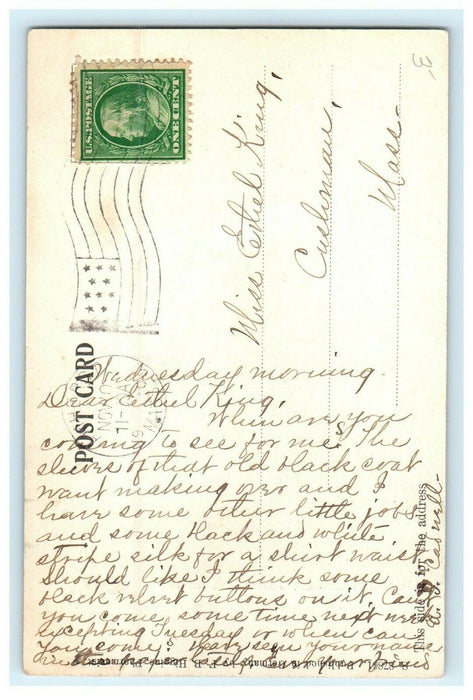 U.S.POSTAGE
ONE CENT
POST CARD
Miss Ethel King,
Cushman,
Mass.
Wednesday morning.
Dear Ethel King,
When are you
coming to see for me. The
sleeves of that old black coat
want making over and I
have some other little jobs
and some black and white
stripe silk for a shirt waist
should like I think some
black velvet buttons on it. Can
you come some time next week
excepting Tuesday or when can
you come?
This side is for the address